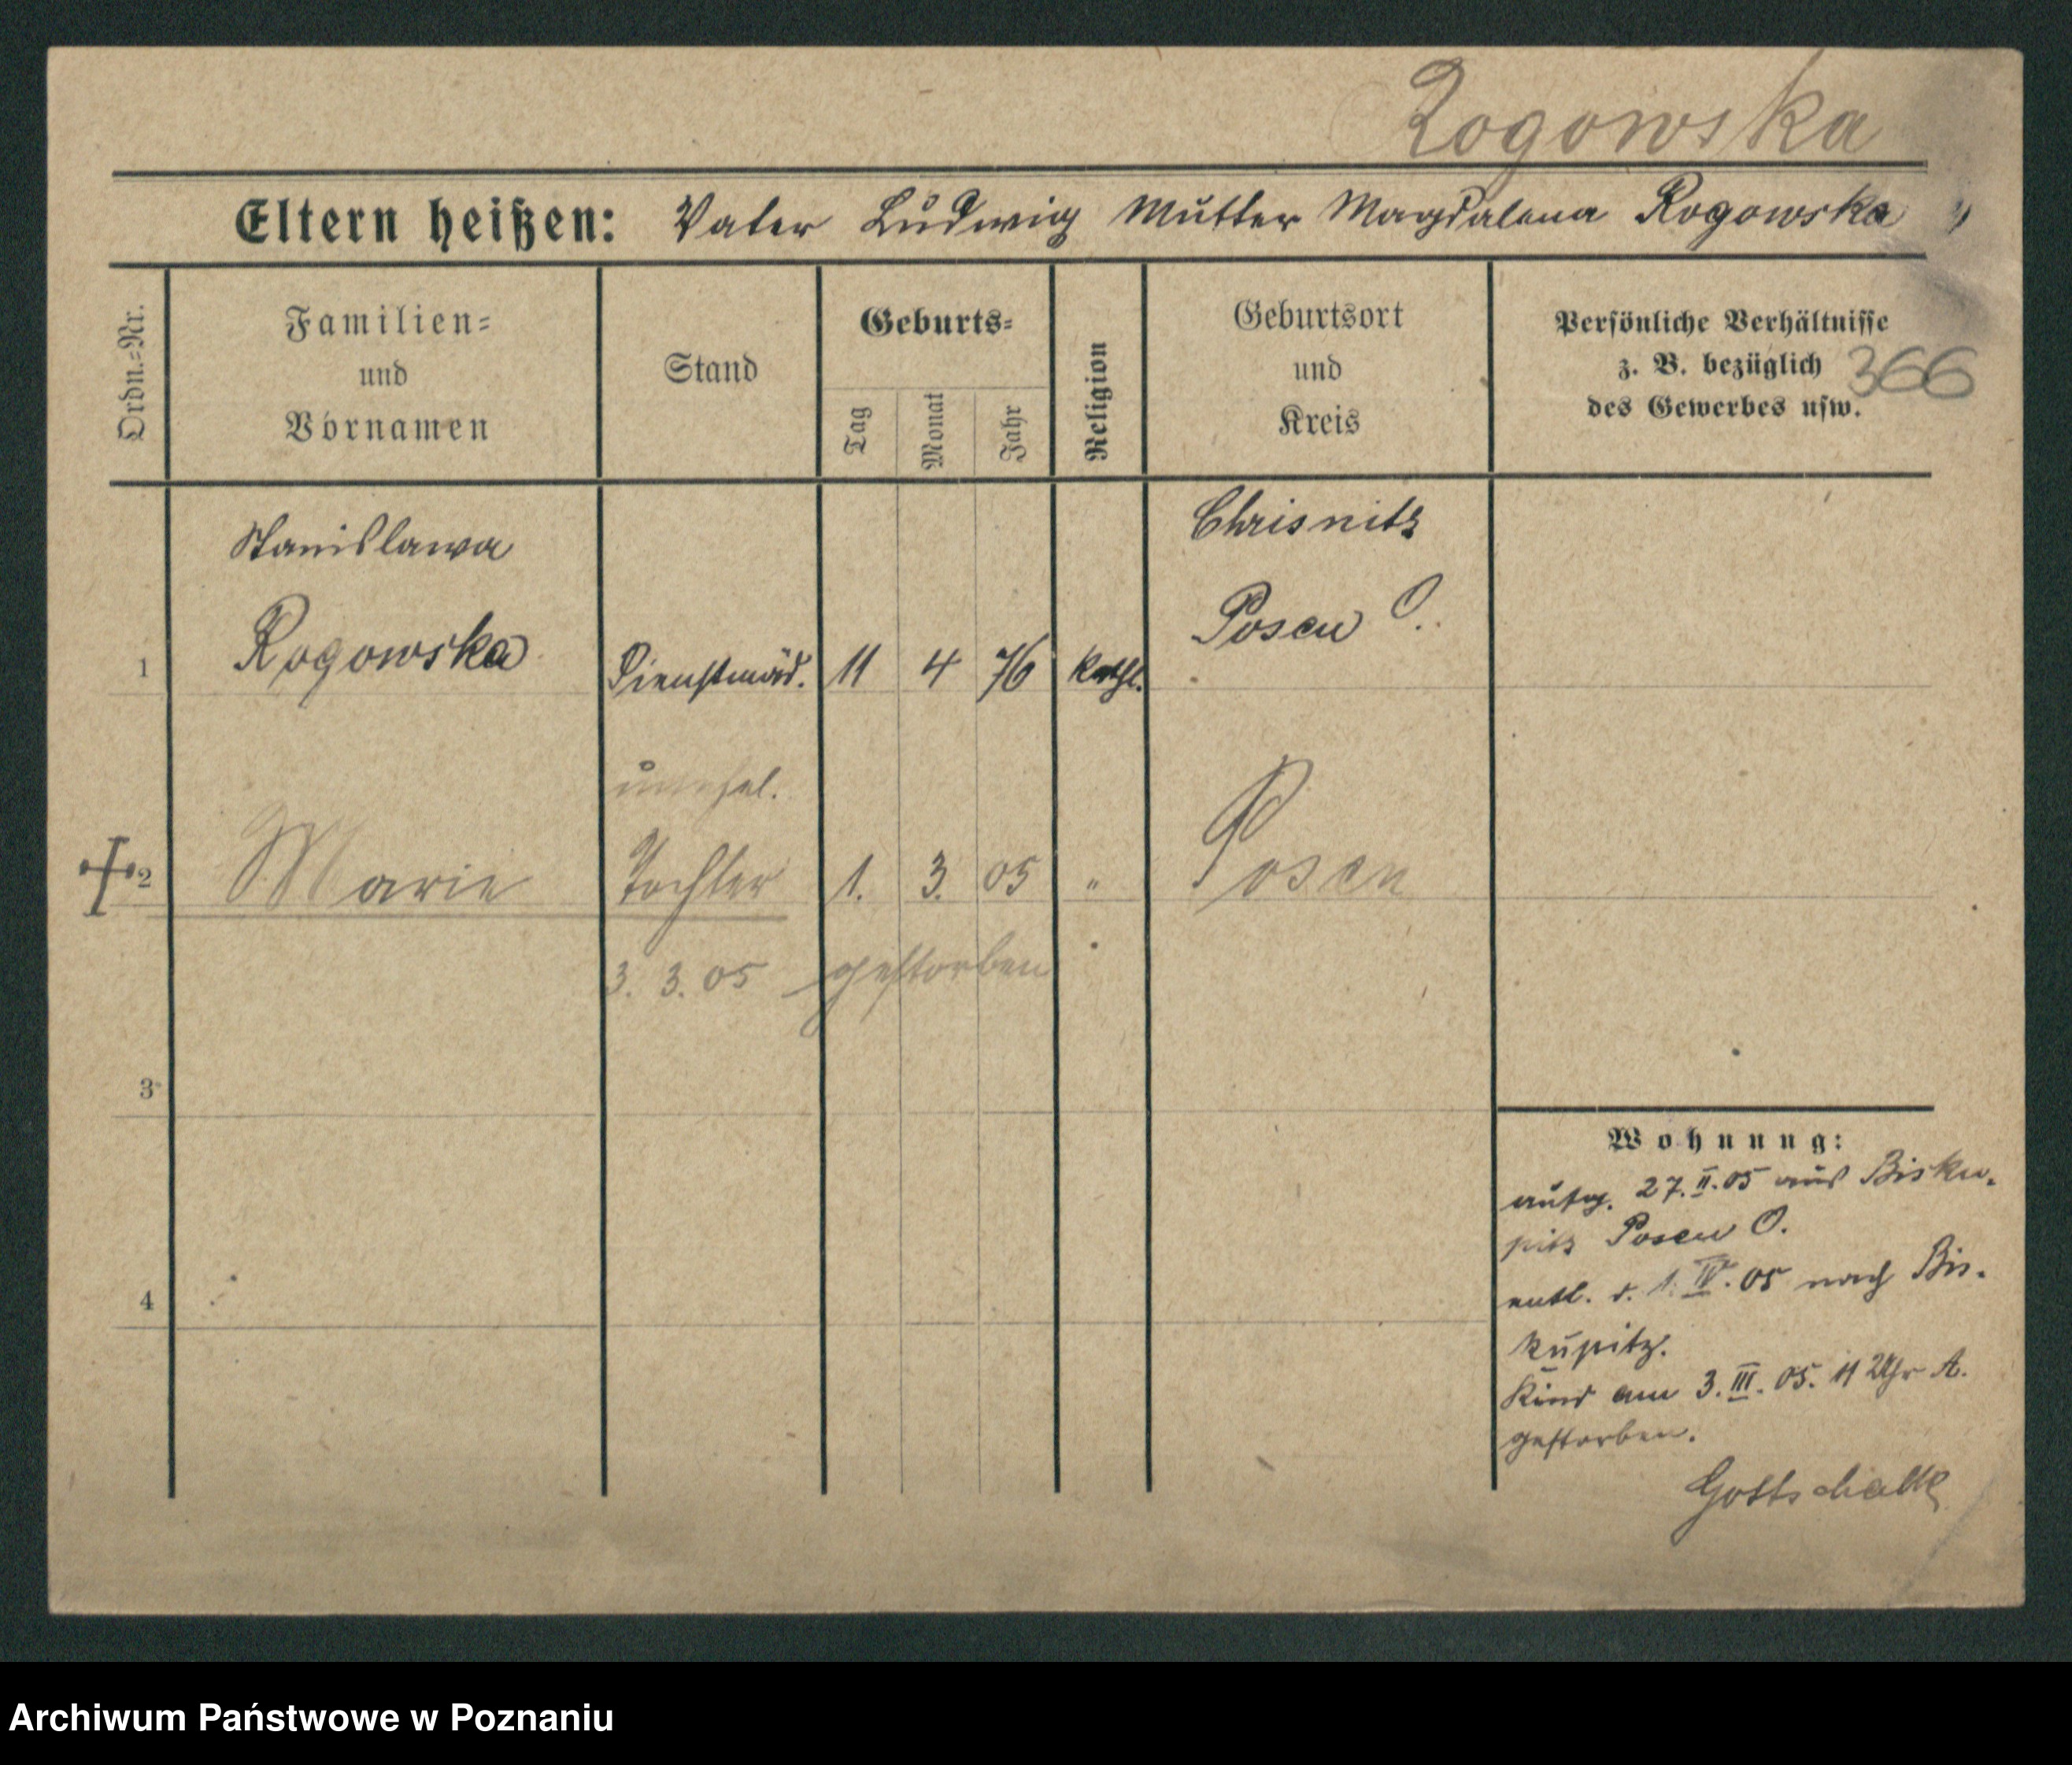 Rogowska
Eltern heißen: Vater Ludwig Mutter Magdalena Rogowska
Ordn.=Nr.
Familien=
und
Vornamen
Stand
Geburts=
Tag
Monat
Jahr
Religion
Geburtsort
und
Kreis
Persönliche Verhältnisse
z. B. bezüglich
des Gewerbes usw.
366
Stanislawa
Rogowska
1
Dienstmäd.
11
4
76
kathl.
Chrisnitz
Posen O.
2
Marie
unehel.
Tochter
1.
3.
05
"
Posen
3. 3. 05 gestorben
3
4
Wohnung:
aufg. 27. II. 05 aus Bisku-
pitz Posen O.
entl. d. 1. IV. 05 nach Bis-
kupitz.
Kind am 3. III. 05. 11 Uhr A.
gestorben.
Gottschalk
Archiwum Państwowe w Poznaniu